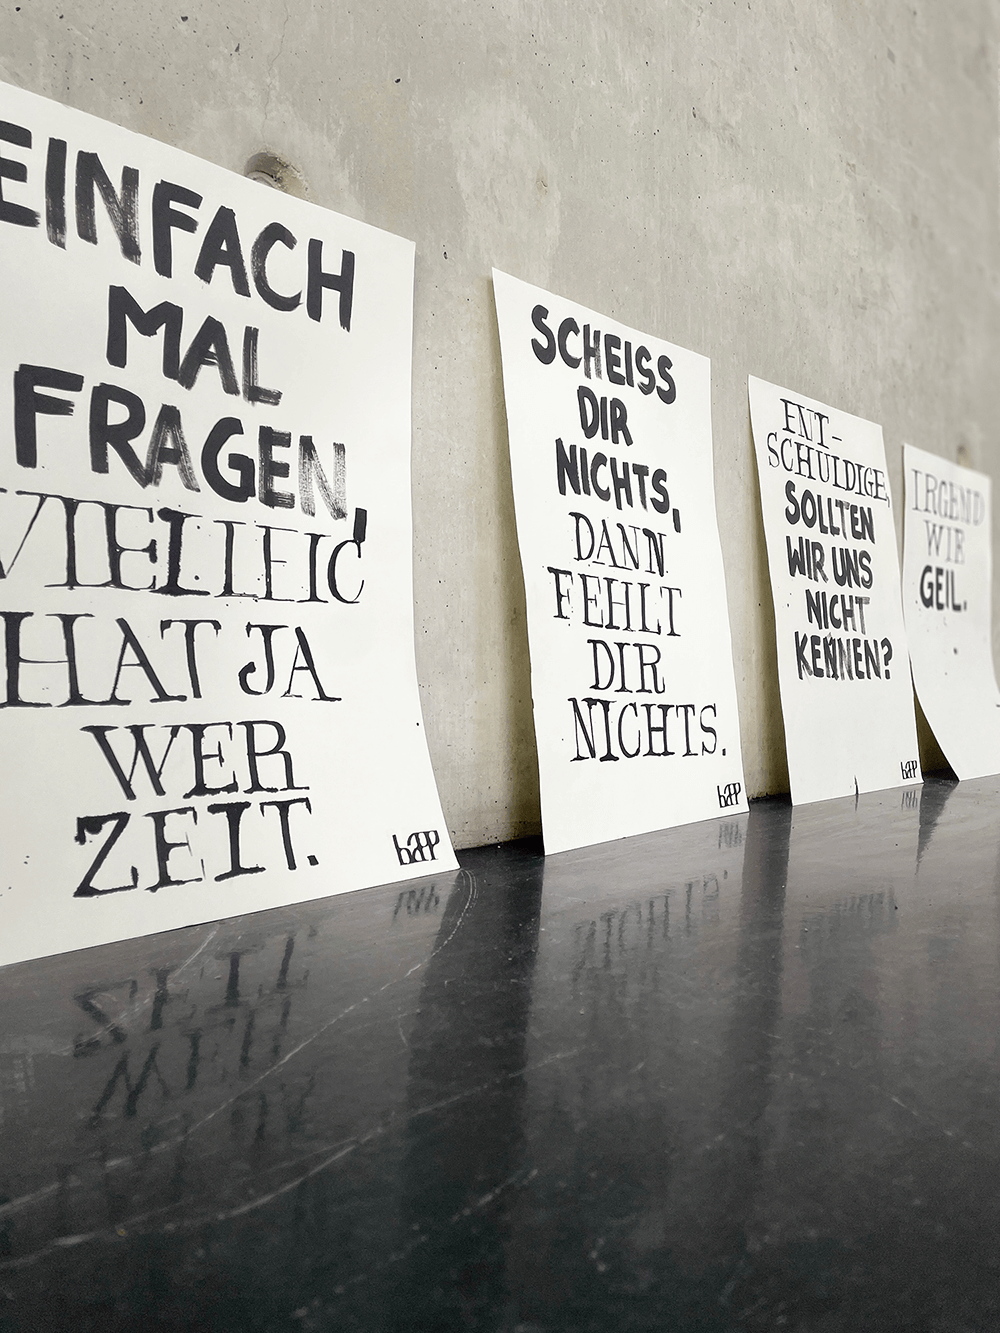 EINFACH
MAL
FRAGEN,
VIELLEIC
HAT JA
WER
ZEIT.
SCHEISS
DIR
NICHTS,
DANN
FEHLT
DIR
NICHTS.
ENT-
SCHULDIGE,
SOLLTEN
WIR UNS
NICHT
KENNEN?
IRGEND
WIE
GEIL.